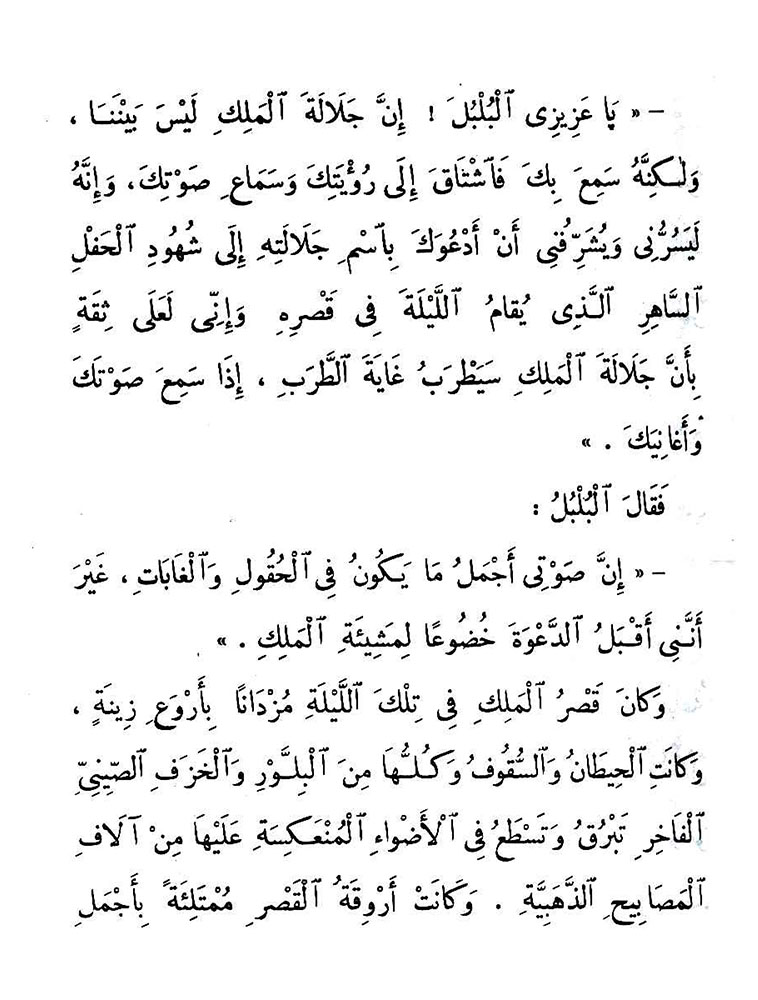 – « يَا عَزِيزِى ٱلْبُلْبُلَ ! إِنَّ جَلَالَةَ ٱلْمَلِكِ لَيْسَ بَيْنَنَا ،
وَلٰكِنَّهُ سَمِعَ بِكَ فَٱشْتَاقَ إِلَى رُؤْيَتِكَ وَسَمَاعِ صَوْتِكَ، وَإِنَّهُ
لَيَسُرُّنِى وَيُشَرِّفُنِى أَنْ أَدْعُوَكَ بِٱسْمِ جَلَالَتِهِ إِلَى شُهُودِ ٱلْحَفْلِ
ٱلسَّاهِرِ ٱلَّذِى يُقَامُ ٱللَّيْلَةَ فِى قَصْرِهِ وَإِنِّى لَعَلَى ثِقَةٍ
بِأَنَّ جَلَالَةَ ٱلْمَلِكِ سَيَطْرَبُ غَايَةَ ٱلطَّرَبِ ، إِذَا سَمِعَ صَوْتَكَ
وَأَغَانِيَكَ . »
فَقَالَ ٱلْبُلْبُلُ :
– « إِنَّ صَوْتِى أَجْمَلُ مَا يَكُونُ فِى ٱلْحُقُولِ وَٱلْغَابَاتِ ، غَيْرَ
أَنَّنِى أَقْبَلُ ٱلدَّعْوَةَ خُضُوعًا لِمَشِيئَةِ ٱلْمَلِكِ . »
وَكَانَ قَصْرُ ٱلْمَلِكِ فِى تِلْكَ ٱللَّيْلَةِ مُزْدَانًا بِأَرْوَعِ زِينَةٍ ،
وَكَانَتِ ٱلْحِيطَانُ وَٱلسُّقُوفُ وَكُلُّهَا مِنَ ٱلْبِلَّوْرِ وَٱلْخَزَفِ ٱلصِّينِىِّ
ٱلْفَاخِرِ تَبْرُقُ وَتَسْطَعُ فِى ٱلْأَضْوَاءِ ٱلْمُنْعَكِسَةِ عَلَيْهَا مِنْ آلَافِ
ٱلْمَصَابِيحِ ٱلذَّهَبِيَّةِ . وَكَانَتْ أَرْوِقَةُ ٱلْقَصْرِ مُمْتَلِئَةً بِأَجْمَلِ